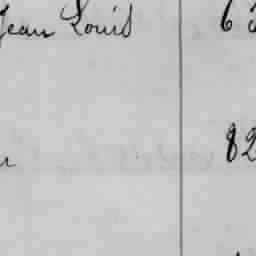 Jean Louis 63
82